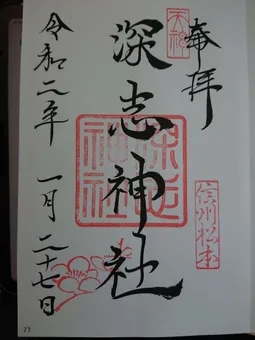 奉拝
天神
深志神社
深志
神社
信州松本
令和二年 一月 二十七日
27